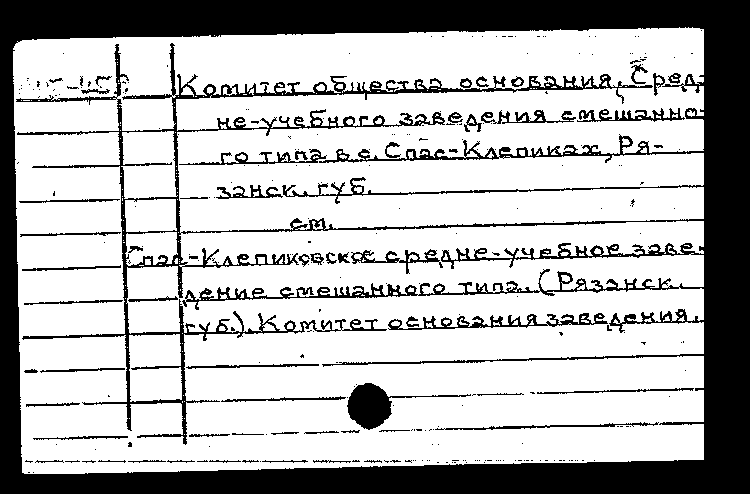 Комитет общества основания, Сред-
не-учебного заведения смешанно-
го типа в с. Спас-Клепиках, Ря-
занск. губ.
см.
Спас-Клепиковское средне-учебное заве-
дение смешанного типа. (Рязанск.
губ.). Комитет основания заведения.